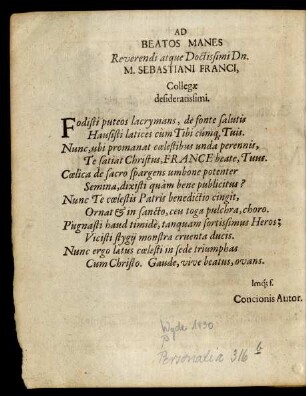 AD
BEATOS MANES
Reverendi atque Doctissimi Dn.
M. SEBASTIANI FRANCI,
Collegæ
desideratissimi.
Fodisti puteos lacrymans, de fonte salutis
Hausisti latices cùm Tibi cúmq, Tuis.
Nunc, ubi promanat cœlestibus unda perennis,
Te satiat Christus, FRANCE beate, Tuus.
Cœlica de sacro spargens umbone potenter
Semina, dixisti quàm bene publicitus?
Nunc Te cœlestis Patris benedictio cingit,
Ornat & in sancto, ceu toga pulchra, choro.
Pugnasti haud timidè, tanquam fortissimus Heros;
Vicisti stygij monstra cruenta ducis.
Nunc ergo latus cœlesti in sede triumphas
Cum Christo. Gaude, vive beatus, ovans.
f.
Concionis Autor.
Personalia 316